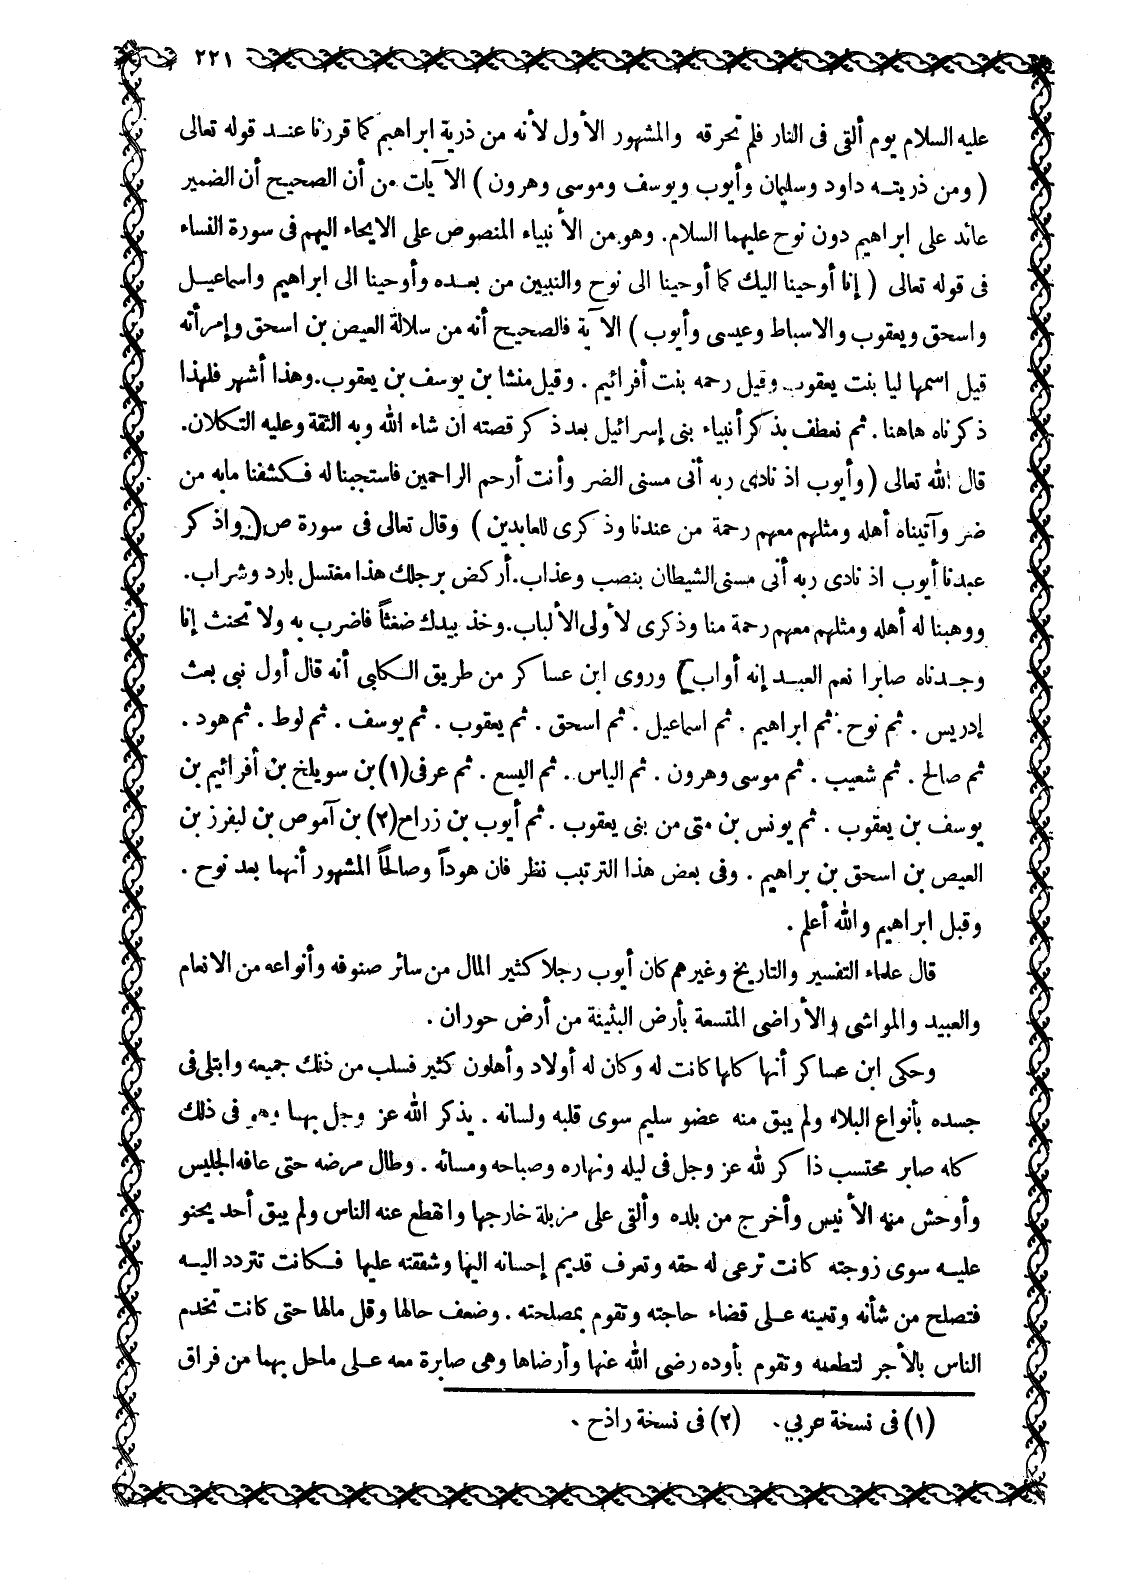 ٢٢١
عليه السلام يوم ألقى فى النار فلم تحرقه والمشهور الأول لأنه من ذرية ابراهيم كما قررنا عنـد قوله تعالى
( ومن ذريتـه داود وسليمان وأيوب ويوسف وموسى وهرون ) الآيات من أن الصحيح أن الضمير
عائد على ابراهيم دون نوح عليهما السلام. وهو من الأنبياء المنصوص على الايحاء اليهم فى سورة النساء
فى قوله تعالى ( إنا أوحينا اليك كما أوحينا الى نوح والنبيين من بعـده وأوحينا الى ابراهيم واسماعيـل
واسحق ويعقوب والاسباط وعيسى وأيوب ) الآية فالصحيح أنه من سلالة العيص بن اسحق وإمرأته
قيل اسمها ليا بنت يعقوب وقيل رحمه بنت أفرائيم . وقيل منشا بن يوسف بن يعقوب.وهذا أشهر فلهذا
ذكرناه هاهنا . ثم نعطف بذكر أنبياء بنى إسرائيل بعد ذكر قصته ان شاء الله وبه الثقة وعليه التكلان.
قال الله تعالى ( وأيوب اذ نادى ربه أنى مسنى الضر وأنت أرحم الراحمين فاستجبنا له فـكشفنا مابه من
ضر وآتيناه أهله ومثلهم معهم رحمة من عندنا وذكرى للعابدين ) وقال تعالى فى سورة ص ( واذكر
عبدنا أيوب اذ نادى ربه أنى مسنى الشيطان بنصب وعذاب.أركض برجلك هذا مغتسل بارد وشراب.
ووهبنا له أهله ومثلهم معهم رحمة منا وذكرى لأولى الألباب.وخذ بيدك ضغثاً فاضرب به ولا تحنث إنا
وجـدناه صابرا نعم العبـد إنه أواب ) وروى ابن عساكر من طريق الـكلبى أنه قال أول نبى بعث
إدريس . ثم نوح . ثم ابراهيم . ثم اسماعيل . ثم اسحق . ثم يعقوب . ثم يوسف . ثم لوط . ثم هود .
ثم صالح . ثم شعيب . ثم موسى وهرون . ثم الياس . ثم اليسع . ثم عرفى(١) بن سويلخ بن أفرائيم بن
يوسف بن يعقوب . ثم يونس بن متى من بنى يعقوب . ثم أيوب بن زراح(٢) بن آموص بن ليفرز بن
العيص بن اسحق بن براهيم . وفى بعض هذا الترتيب نظر فان هوداً وصالحاً المشهور أنهما بعد نوح .
وقبل ابراهيم والله أعلم .
قال علماء التفسير والتاريخ وغيرهم كان أيوب رجلا كثير المال من سائر صنوفه وأنواعه من الانعام
والعبيد والمواشى والأراضى المتسعة بأرض البثينة من أرض حوران .
وحكى ابن عساكر أنها كلها كانت له وكان له أولاد وأهلون كثير فسلب من ذلك جميعه وابتلى فى
جسده بأنواع البلاء ولم يبق منه عضو سليم سوى قلبه ولسانه . يذكر الله عز وجل بهما وهو فى ذلك
كله صابر محتسب ذاكر لله عز وجل فى ليله ونهاره وصباحه ومسائه . وطال مرضه حتى عافه الجليس
وأوحش منه الأنيس وأخرج من بلده وألقى على مزبلة خارجها وانقطع عنه الناس ولم يبق أحد يحنو
عليـه سوى زوجته كانت ترعى له حقه وتعرف قديم إحسانه اليها وشفقته عليها فـكانت تتردد اليـه
فتصلح من شأنه وتعينه عـلى قضاء حاجته وتقوم بمصلحته . وضعف حالها وقل مالها حتى كانت تخدم
الناس بالأجر لتطعمه وتقوم بأوده رضى الله عنها وأرضاها وهى صابرة معه عـلى ماحل بهما من فراق
(١) فى نسخة عربي. (٢) فى نسخة راذح .